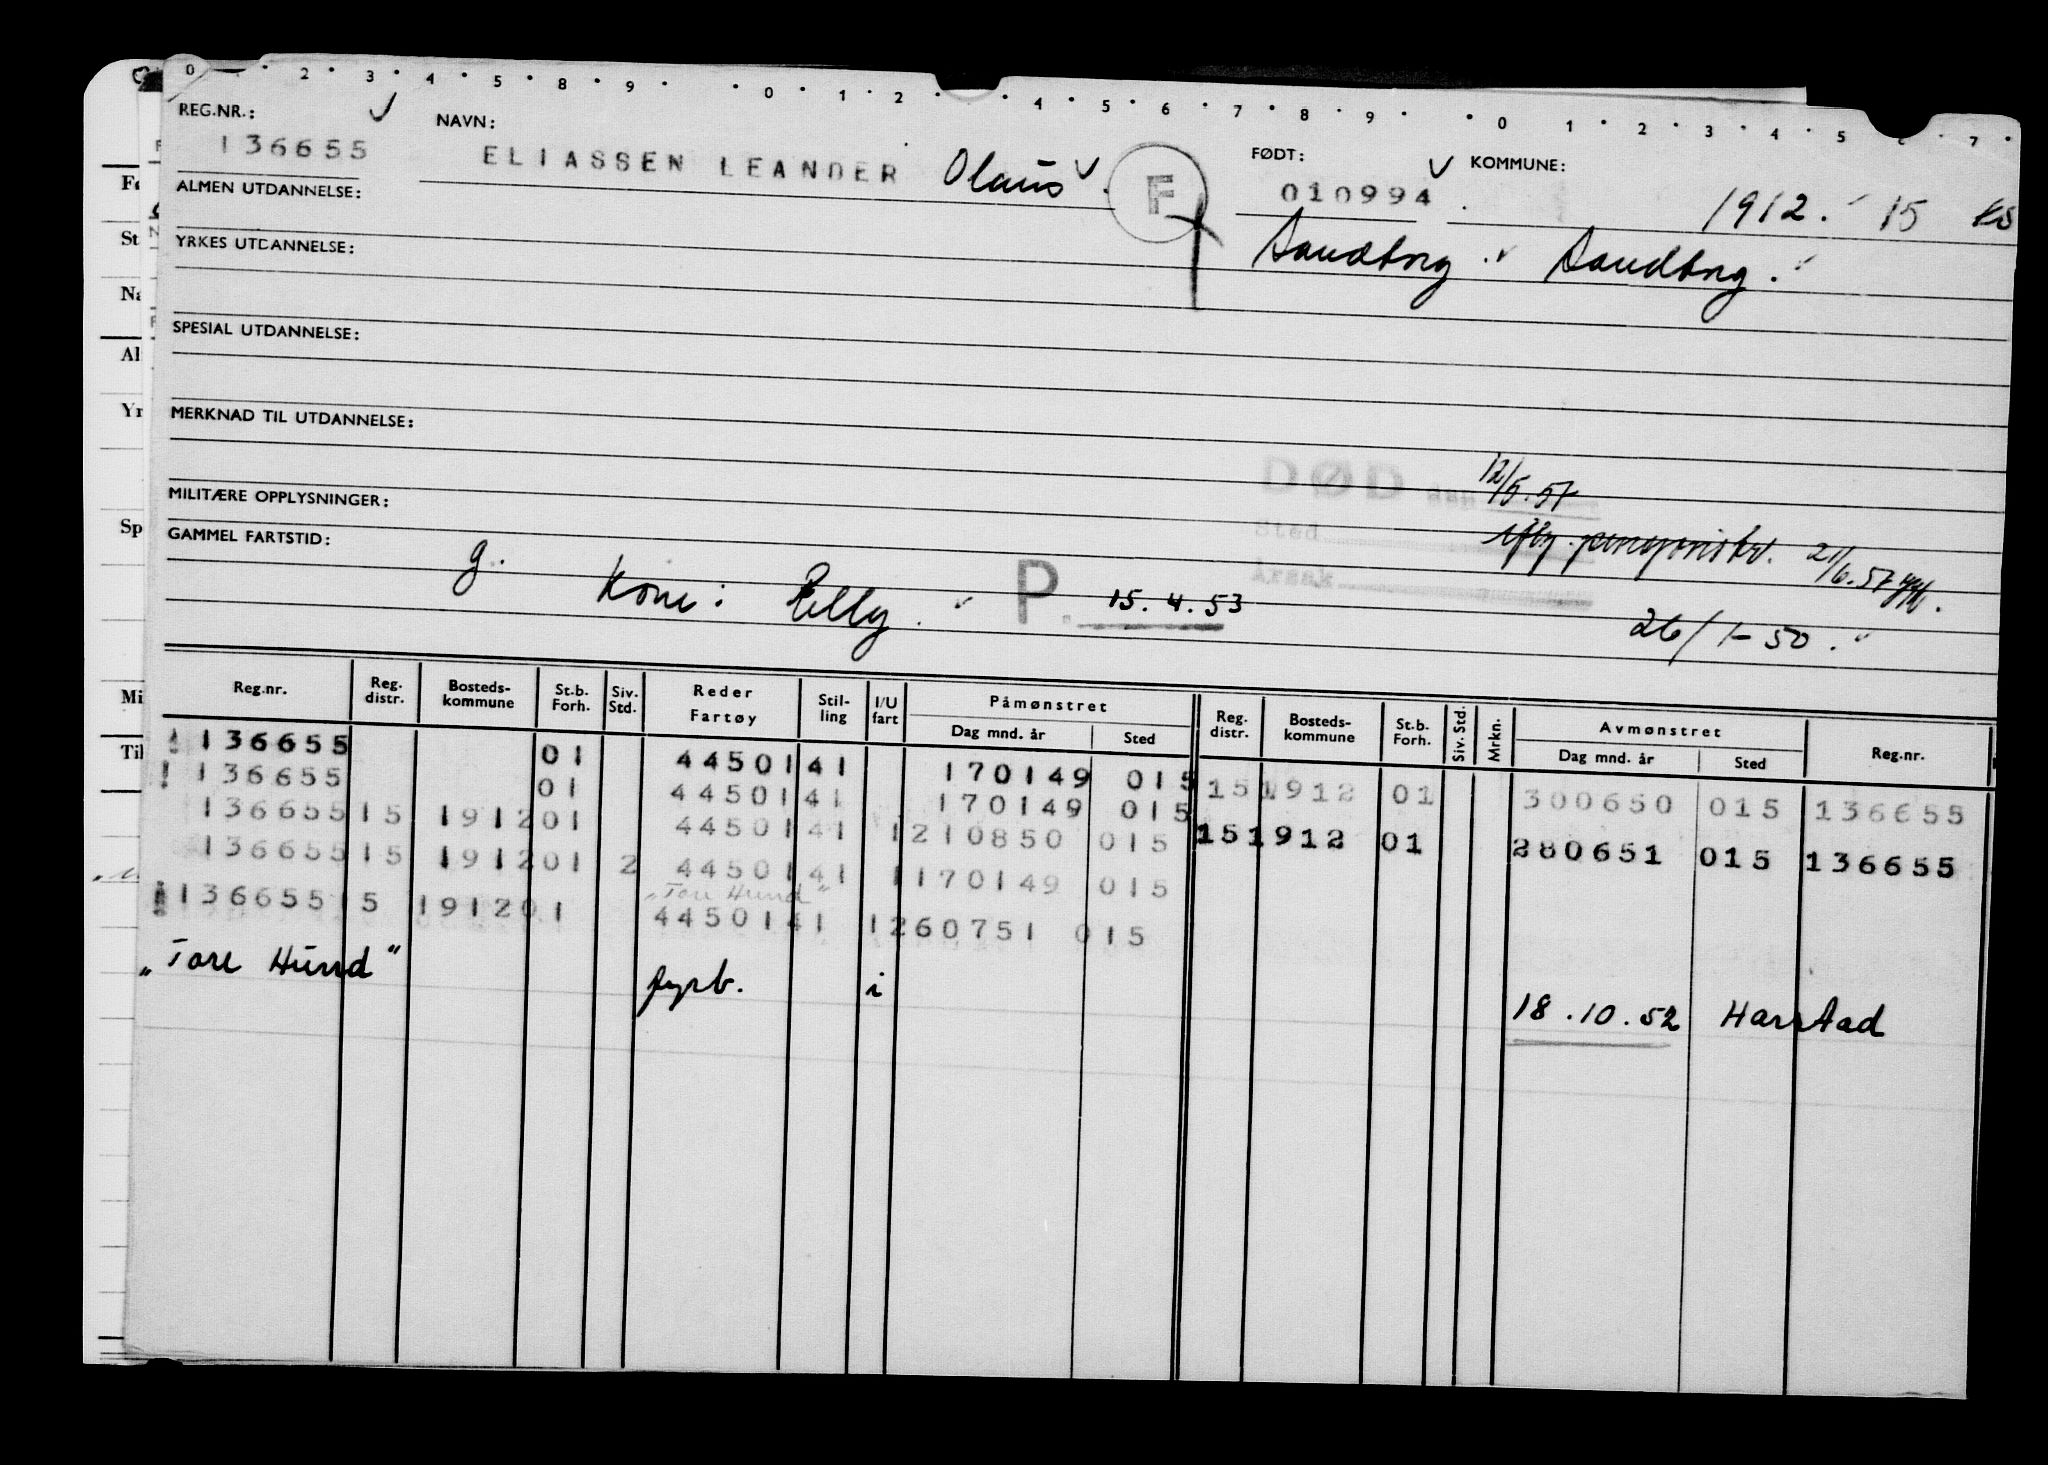 0 2 3 4 5 8 9 0 1 2 4 5 6 7 8 9 0 1 2 3 4 5 7
REG.NR.: NAVN: FØDT: KOMMUNE:
136655 ELIASSEN LEANDER Olaus F 010994 1912. 15
ALMEN UTDANNELSE:
YRKES UTDANNELSE: Sandtorg Sandtorg.
SPESIAL UTDANNELSE:
MERKNAD TIL UTDANNELSE:
DØD den 12/5.57
MILITÆRE OPPLYSNINGER:
Sted
GAMMEL FARTSTID: g. 21/6.57
Årsak
Kone: P. 15.4.53
26/1-50.
Reg.nr. Reg. distr. Bosteds-kommune St.b. Forh. Siv. Std. Reder Fartøy Stil-ling I/U fart Påmønstret Dag mnd. år Sted Reg. distr. Bosteds-kommune St.b. Forh. Siv. Std. Mrkn. Avmønstret Dag mnd. år Sted Reg.nr.
136655 01 4450141 170149 015
136655 01 4450141 170149 015 151912 01 300650 015 136655
136655 15 191201 4450141 1210850 015 151912 01 280651 015 136655
136655 15 191201 2 4450141 1170149 015
"Tore Hund"
136655 15 191201 4450141 1260751 015
"Tore Hund" fyrb. i 18.10.52 Harstad
Fø
St
Na
Al
Yr
Sp
Mi
Til